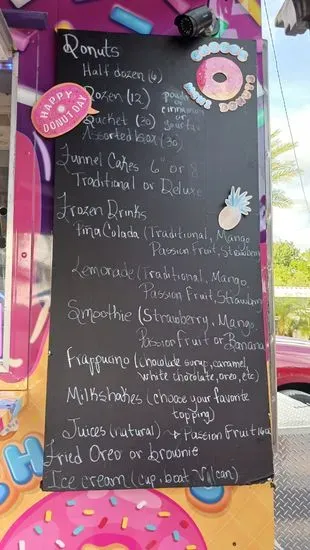 Donuts
Half dozen (6)
Dozen (12)
Bucket (30)
Assorted box (30)
powder
or
cinnamon
or
HAPPY
DONUT DAY
MINI DONUTS
Funnel Cakes 6" or 8
Traditional or Deluxe
Frozen Drinks
Piña Colada (Traditional, Mango
Passion Fruit, Strawberr
Lemonade (Traditional, Mango,
Passion Fruit, Strawberr
Smoothie (Strawberry, Mango,
Passion Fruit or Banana
Frappucino (chocolate syrup, caramel,
white chocolate, oreo, etc)
Milkshakes (choose your favorite
topping)
Juices (natural) → Passion Fruit
Fried Oreo or brownie
Ice cream (cup, boat